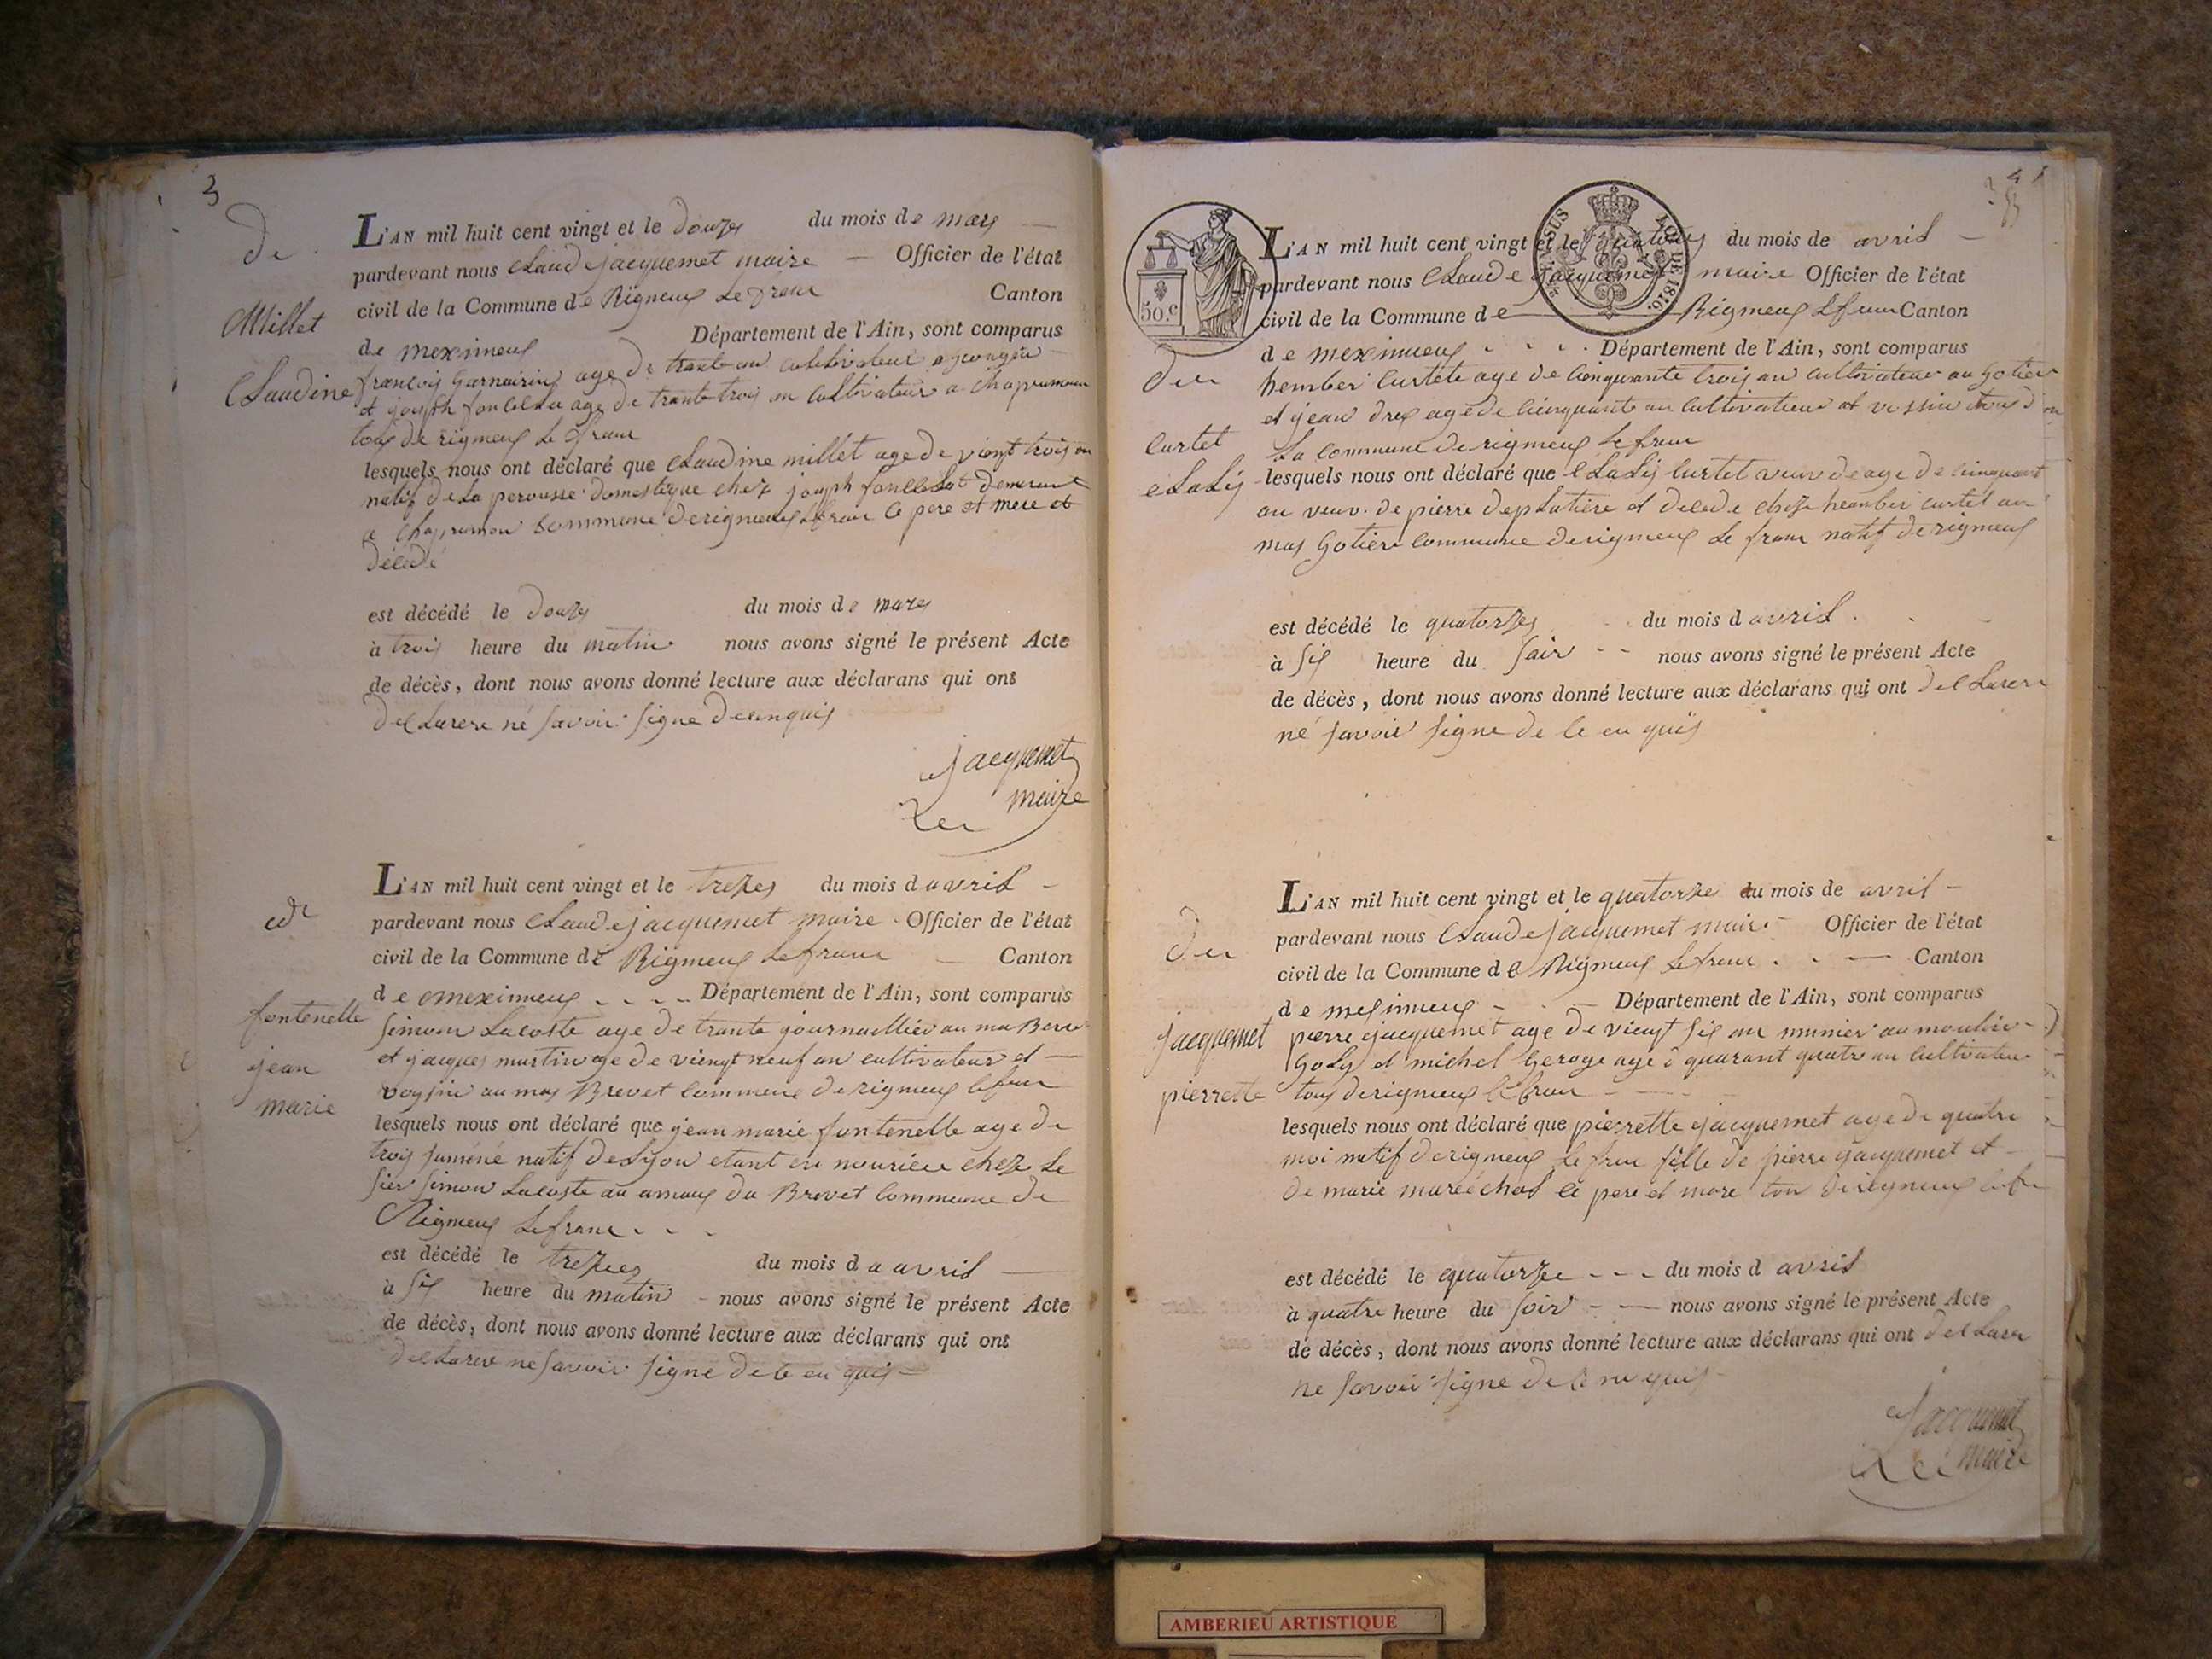 3
de
Millet
Claudine
L'AN mil huit cent vingt et le douzes du mois de mars
pardevant nous Claude jacquemet maire Officier de l'état
civil de la Commune de Rigneux Le franc Canton
de meximieux Département de l'Ain, sont comparus
françois age de trante an cultivateur
et joseph age de trante trois an cultivateur a
tous de rigneux Le franc
lesquels nous ont déclaré que Claudine millet age de vient trois an
natif de La perousse domestique chez joseph demeurant
a commune de rigneux Le franc Ce pere et mere et
décédé
est décédé le douzes du mois de mars
à trois heure du matin nous avons signé le présent Acte
de décès, dont nous avons donné lecture aux déclarans qui ont
declarere né savoir signe de
jacquemet
maire
de
fontenelle
jean
marie
L'AN mil huit cent vingt et le trezes du mois d avril
pardevant nous Claude jacquemet maire Officier de l'état
civil de la Commune de Rigneux Le franc Canton
de meximieux Département de l'Ain, sont comparus
simon Lacoste age de trante journallier au
et jacques martin age de viengt neuf an cultivateur et
voysin au mas Brevet commune de rigneux le franc
lesquels nous ont déclaré que jean marie fontenelle age de
trois natif de Lyon etant en nourice chez Le
sier simon Lacoste au amas du Brevet Commune de
Rigneux Le franc
est décédé le trezes du mois d a avril
à six heure du matin nous avons signé le présent Acte
de décès, dont nous avons donné lecture aux déclarans qui ont
declarere ne savoir signe de ce en quis
4
50.c
VISA 1816
de
Curtet
L'AN mil huit cent vingt et le quatorzes du mois de avril
pardevant nous Claude jacquemet maire Officier de l'état
civil de la Commune de Rigneux Le franc Canton
de meximieux Département de l'Ain, sont comparus
age de cinquante trois an cultivateur au
et jean age de cinquante an cultivateur et
La commune de rigneux Le franc
lesquels nous ont déclaré que Curtet age de cinquant
an veuv. de pierre et chez curtet au
mas Commune de rigneux Le franc natif de rigneux
est décédé le quatorzes du mois d avril
à six heure du soir nous avons signé le présent Acte
de décès, dont nous avons donné lecture aux déclarans qui ont declarere
né savoir signe de ce en quis
jacquemet
pierrette
L'AN mil huit cent vingt et le quatorze du mois de avril
pardevant nous Claude jacquemet maire Officier de l'état
civil de la Commune de Rigneux Le franc Canton
de mesimieux Département de l'Ain, sont comparus
pierre jacquemet age de viengt six an munier au moulin
et michel age d quarant quatre an cultivateur
tous de rigneux le franc
lesquels nous ont déclaré que pierrette jacquemet age de quatre
moi natif de rigneux Le franc fille de pierre jacquemet et
de marie marechal ce pere et mere tou de rigneux
est décédé le quatorze du mois d avril
à quatre heure du soir nous avons signé le présent Acte
de décès, dont nous avons donné lecture aux déclarans qui ont
ne savoir signe de
jacquemet
maire
AMBERIEU ARTISTIQUE